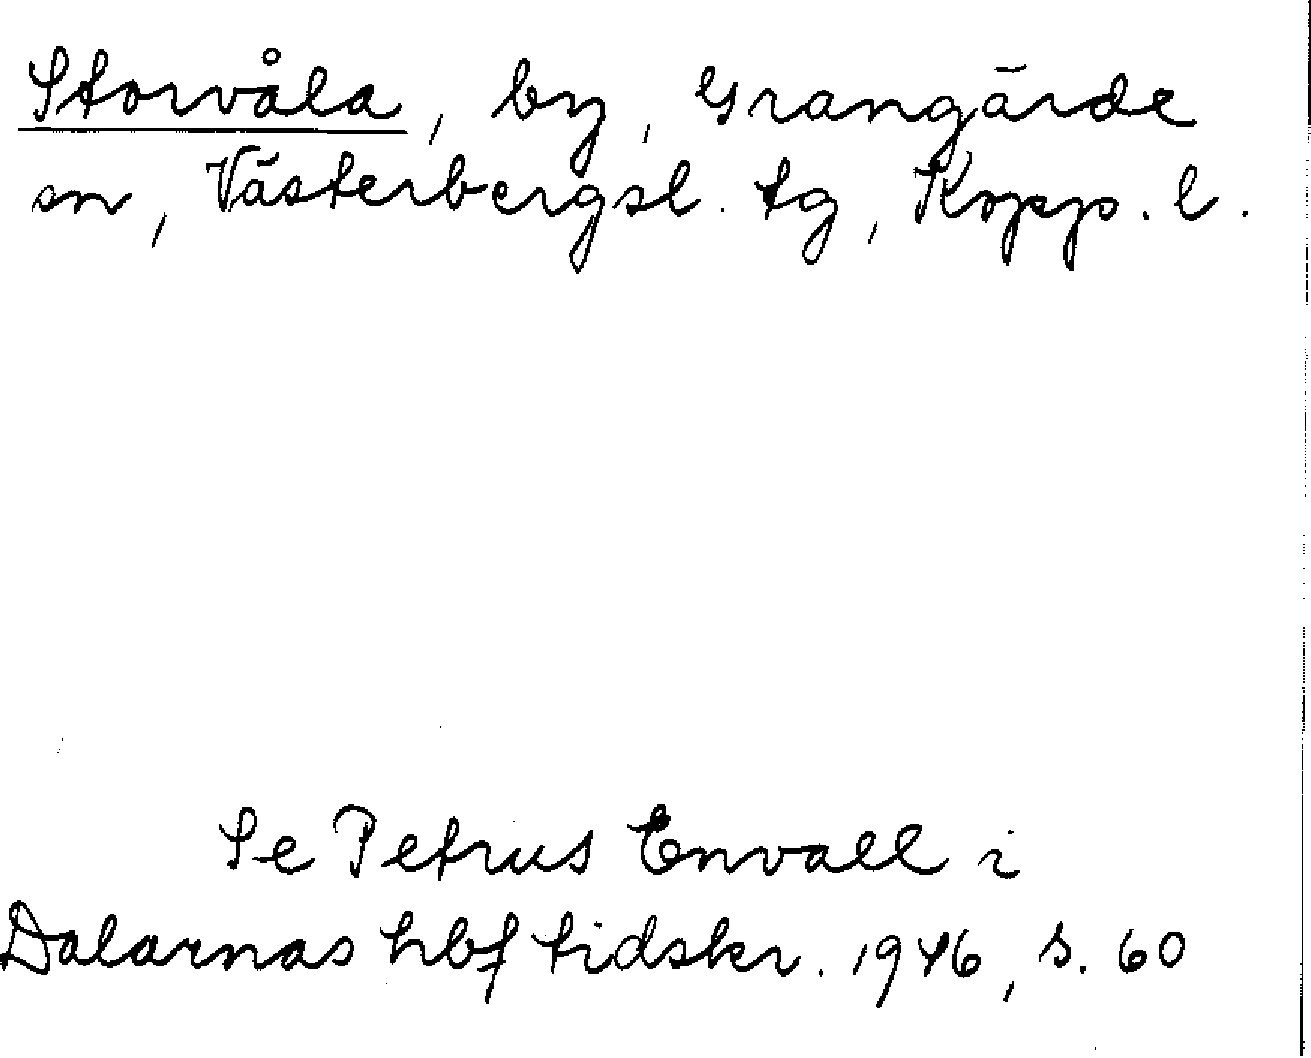 Storvåla, by, Grangärde
sn, Västerbergsl. tg, Kopp. l.
Se Petrus Envall i
Dalarnas hbf tidskr. 1946, s. 60